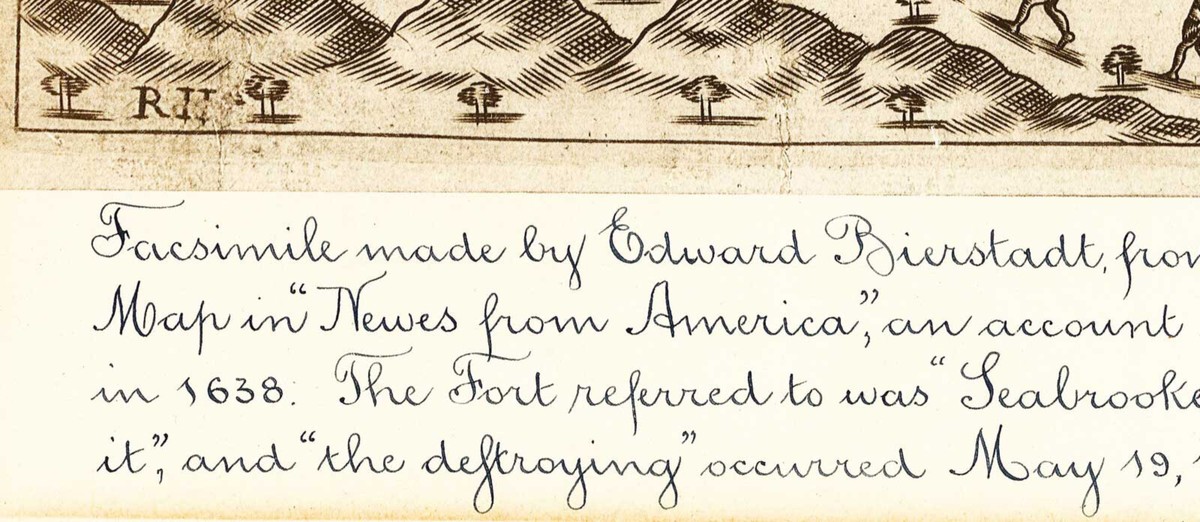 RH
Facsimile made by Edward Bierstadt, from
Map in "Newes from America", an account
in 1638. The Fort referred to was "Seabrooke
it", and "the deſtroying" occurred May 19,